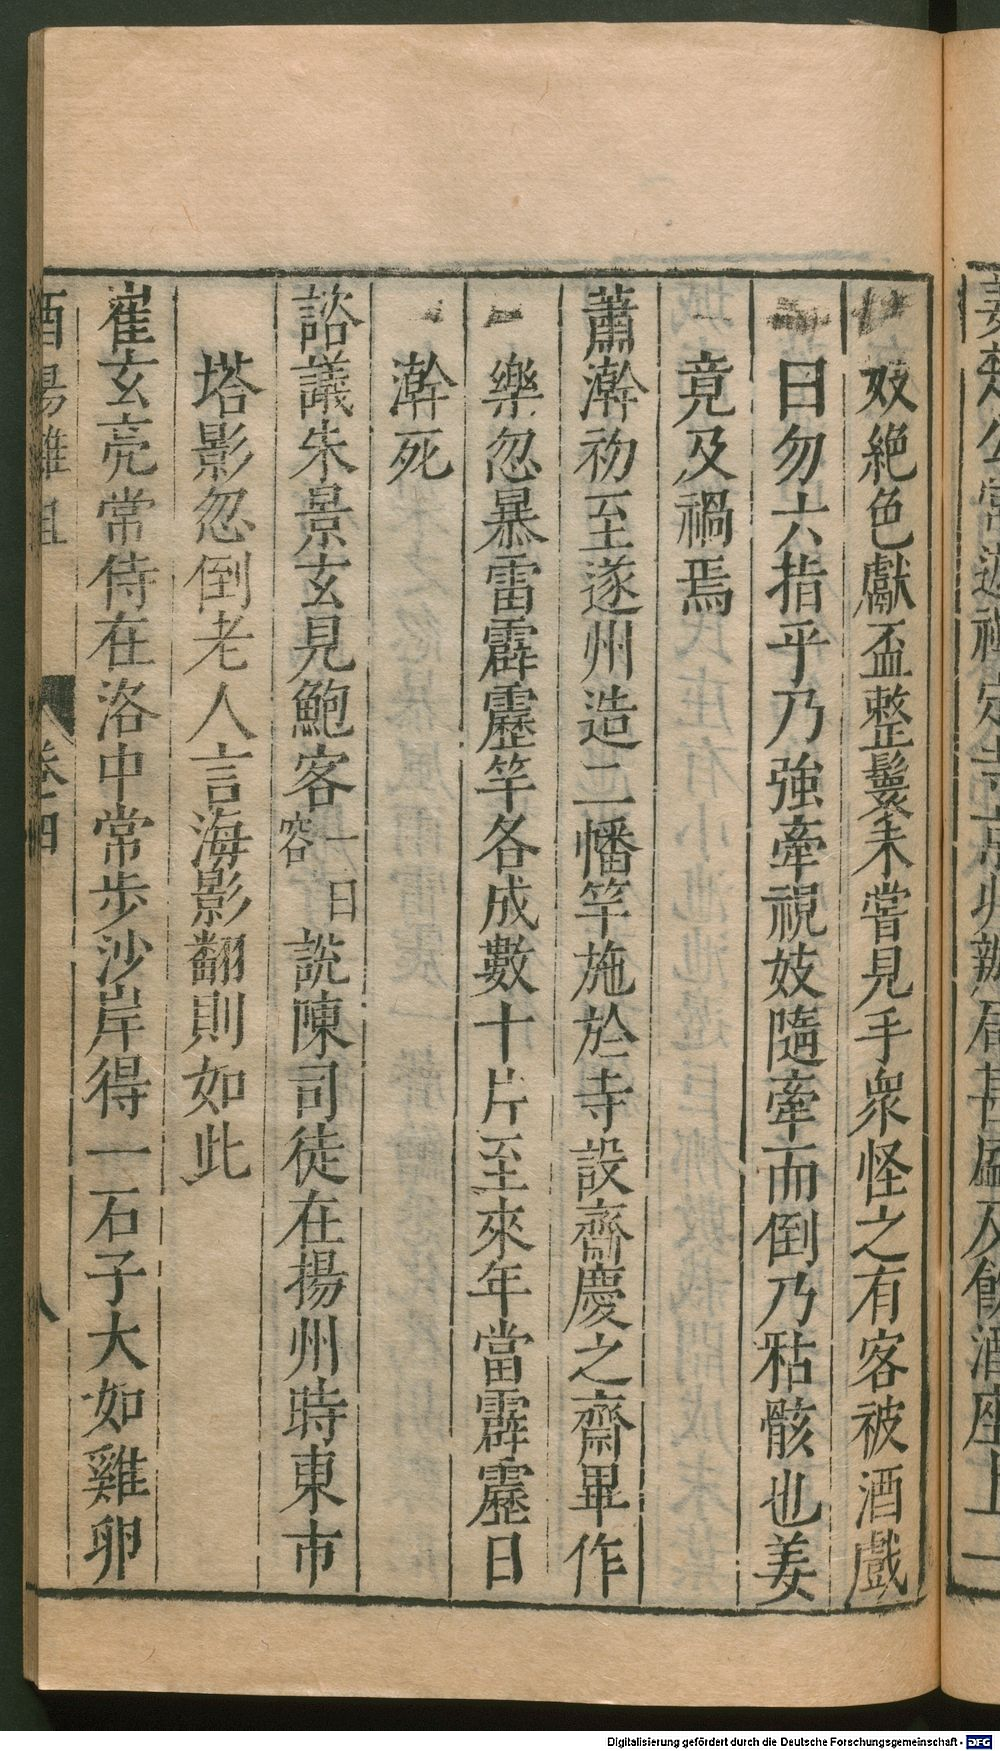 姜楚公常遊禪定寺京兆辦局甚盛及飲酒座上一
妓絕色獻盃整鬟未嘗見手衆怪之有客被酒戲
曰勿六指乎乃強牽視妓隨牽而倒乃枯骸也姜
竟及禍焉
蕭澣初至遂州造二幡竿施於寺設齋慶之齋畢作
樂忽暴雷霹靂竿各成數十片至來年當霹靂日
澣死
諮議朱景玄見鮑客一曰容說陳司徒在揚州時東市
塔影忽倒老人言海影翻則如此
崔玄亮常侍在洛中常步沙岸得一石子大如雞卵
酉陽雜俎 卷四 八
Digitalisierung gefördert durch die Deutsche Forschungsgemeinschaft - DFG